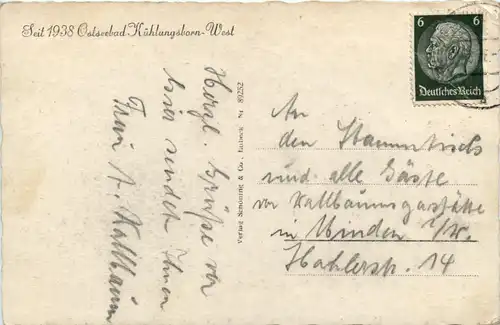 Seit 1938 Ostseebad Kühlungsborn-West
6 6
Deutsches Reich
Herzl. Grüße von
hier sendet Ihnen
Frau A. Kallbaum
Verlag Schöning & Co., Lübeck Nr 89252
An
den Stammtisch
und alle Gäste
von Kallbaumsgaststätte
in Minden i/W.
Hahlerstr. 14